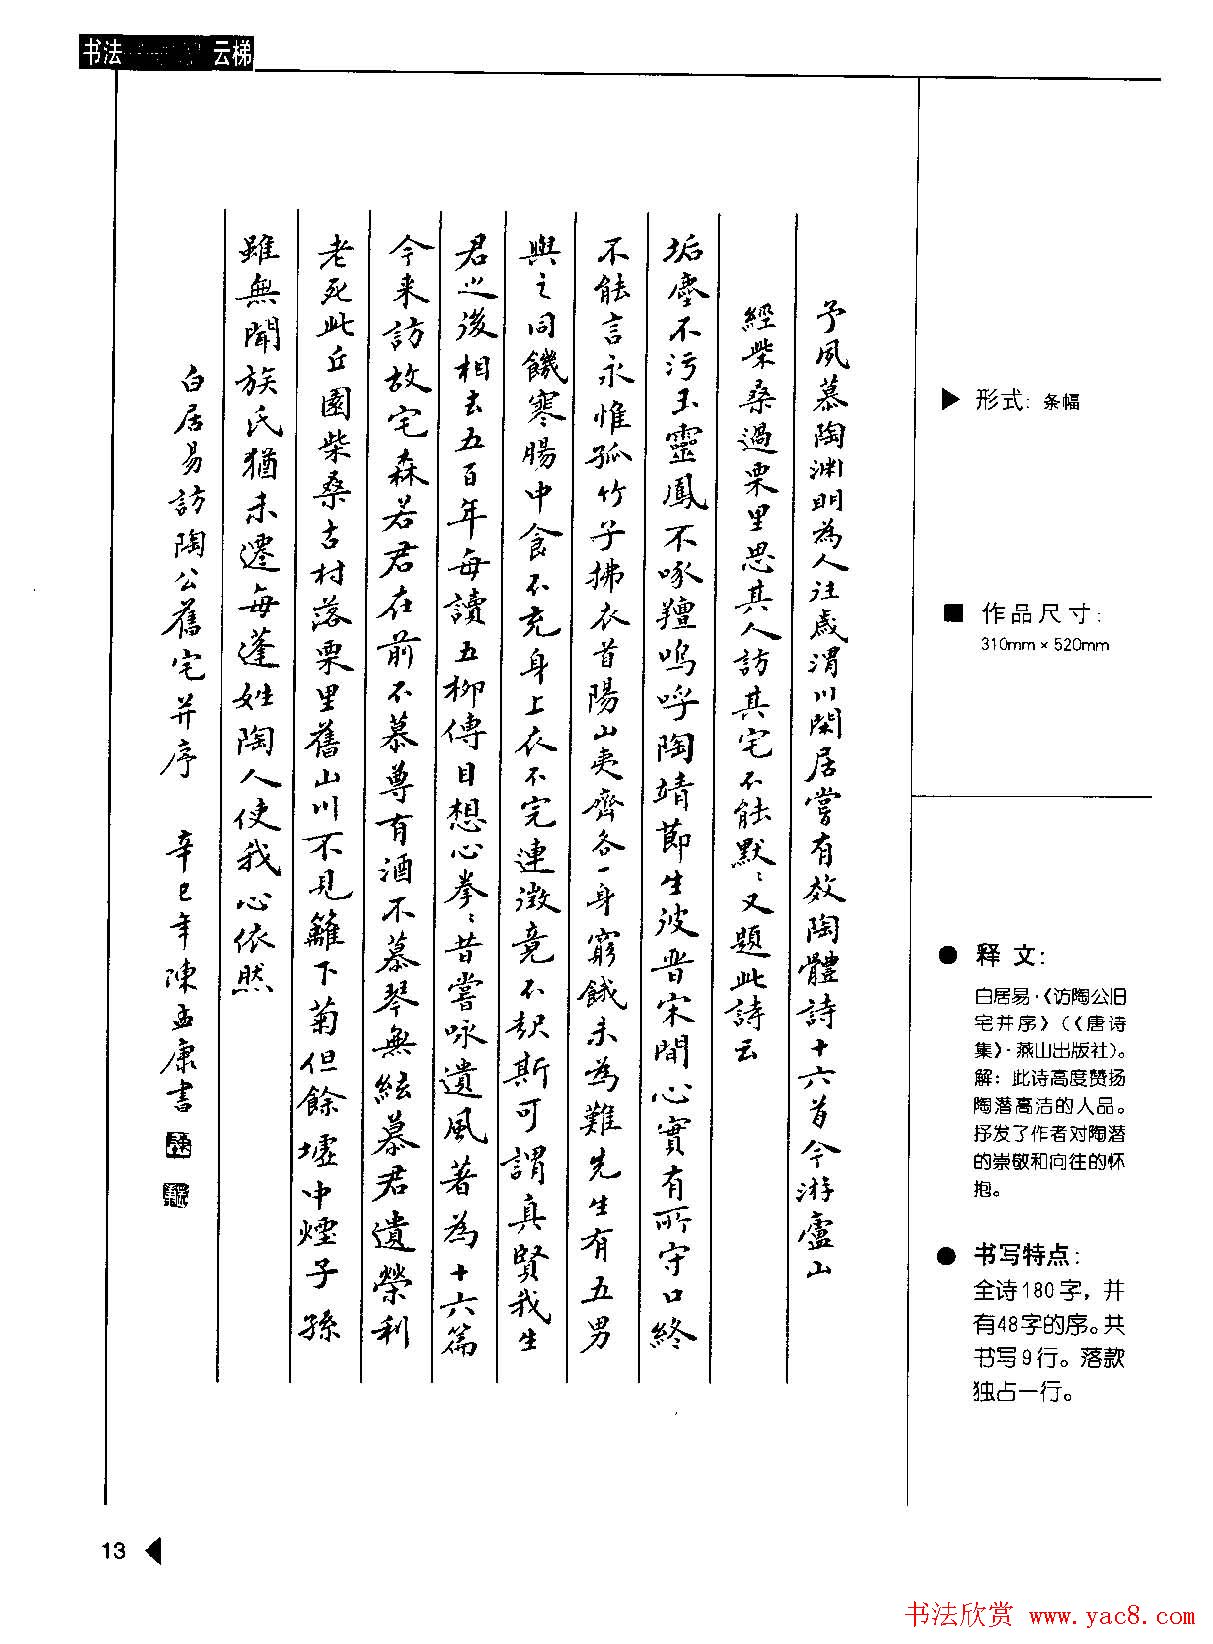 书法
云梯
予夙慕陶渊明為人往歲渭川閑居嘗有效陶體詩十六首今游廬山
經柴桑過栗里思其人訪其宅不能默、又題此詩云
垢塵不污玉靈鳳不啄羶嗚呼陶靖節生彼晋宋間心實有所守口終
不能言永惟孤竹子拂衣首陽山夷齊各一身窮餓未為難先生有五男
與之同饑寒腸中食不充身上衣不完連徵竟不起斯可謂真賢我生
君之後相去五百年每讀五柳傳目想心拳、昔嘗咏遺風著為十六篇
今来訪故宅森若君在前不慕尊有酒不慕琴無絃慕君遺榮利
老死此丘園柴桑古村落栗里舊山川不見籬下菊但餘墟中煙子孫
雖無聞族氏猶未遷每逢姓陶人使我心依然
白居易訪陶公舊宅并序 辛巳年陳孟康書
▶ 形式: 条幅
■ 作品尺寸:
310mm × 520mm
● 释 文:
白居易·《访陶公旧
宅并序》(《唐诗
集》·燕山出版社)。
解: 此诗高度赞扬
陶潜高洁的人品。
抒发了作者对陶潜
的崇敬和向往的怀
抱。
● 书写特点:
全诗180字，并
有48字的序。共
书写9行。落款
独占一行。
13
书法欣赏 www.yac8.com